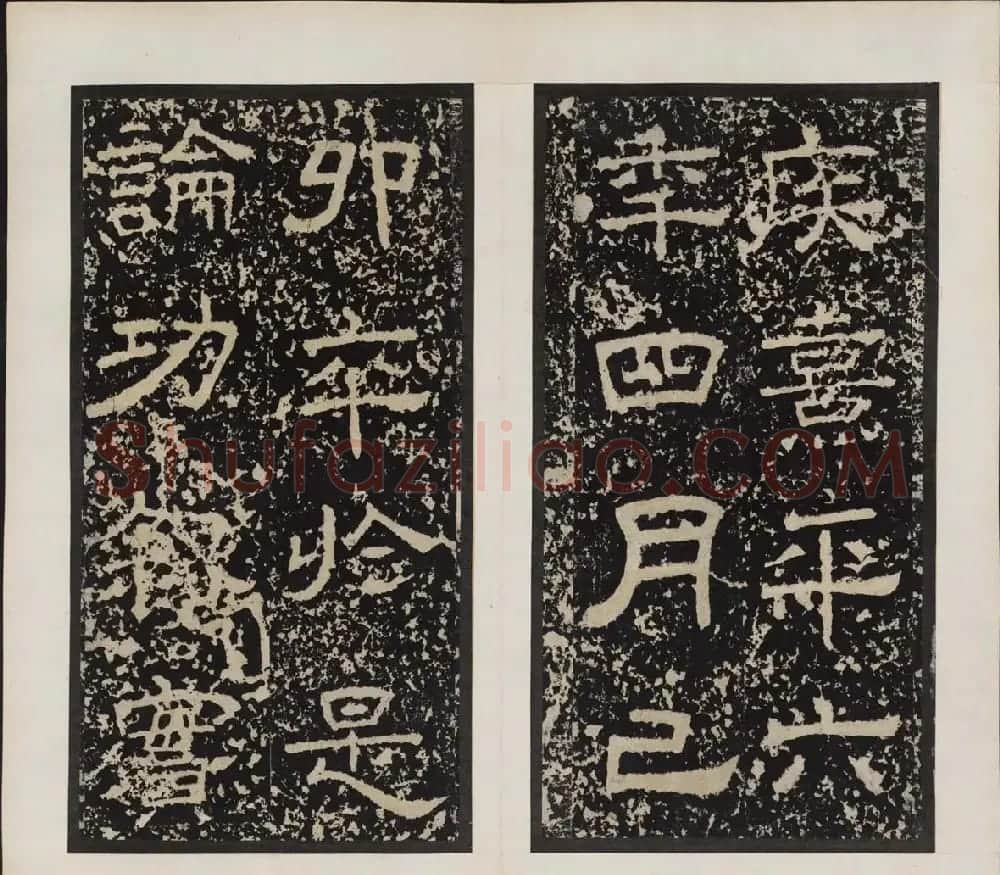 疾熹平六
年四月己
卯卒於是
論功實
Shufaziliao.COM